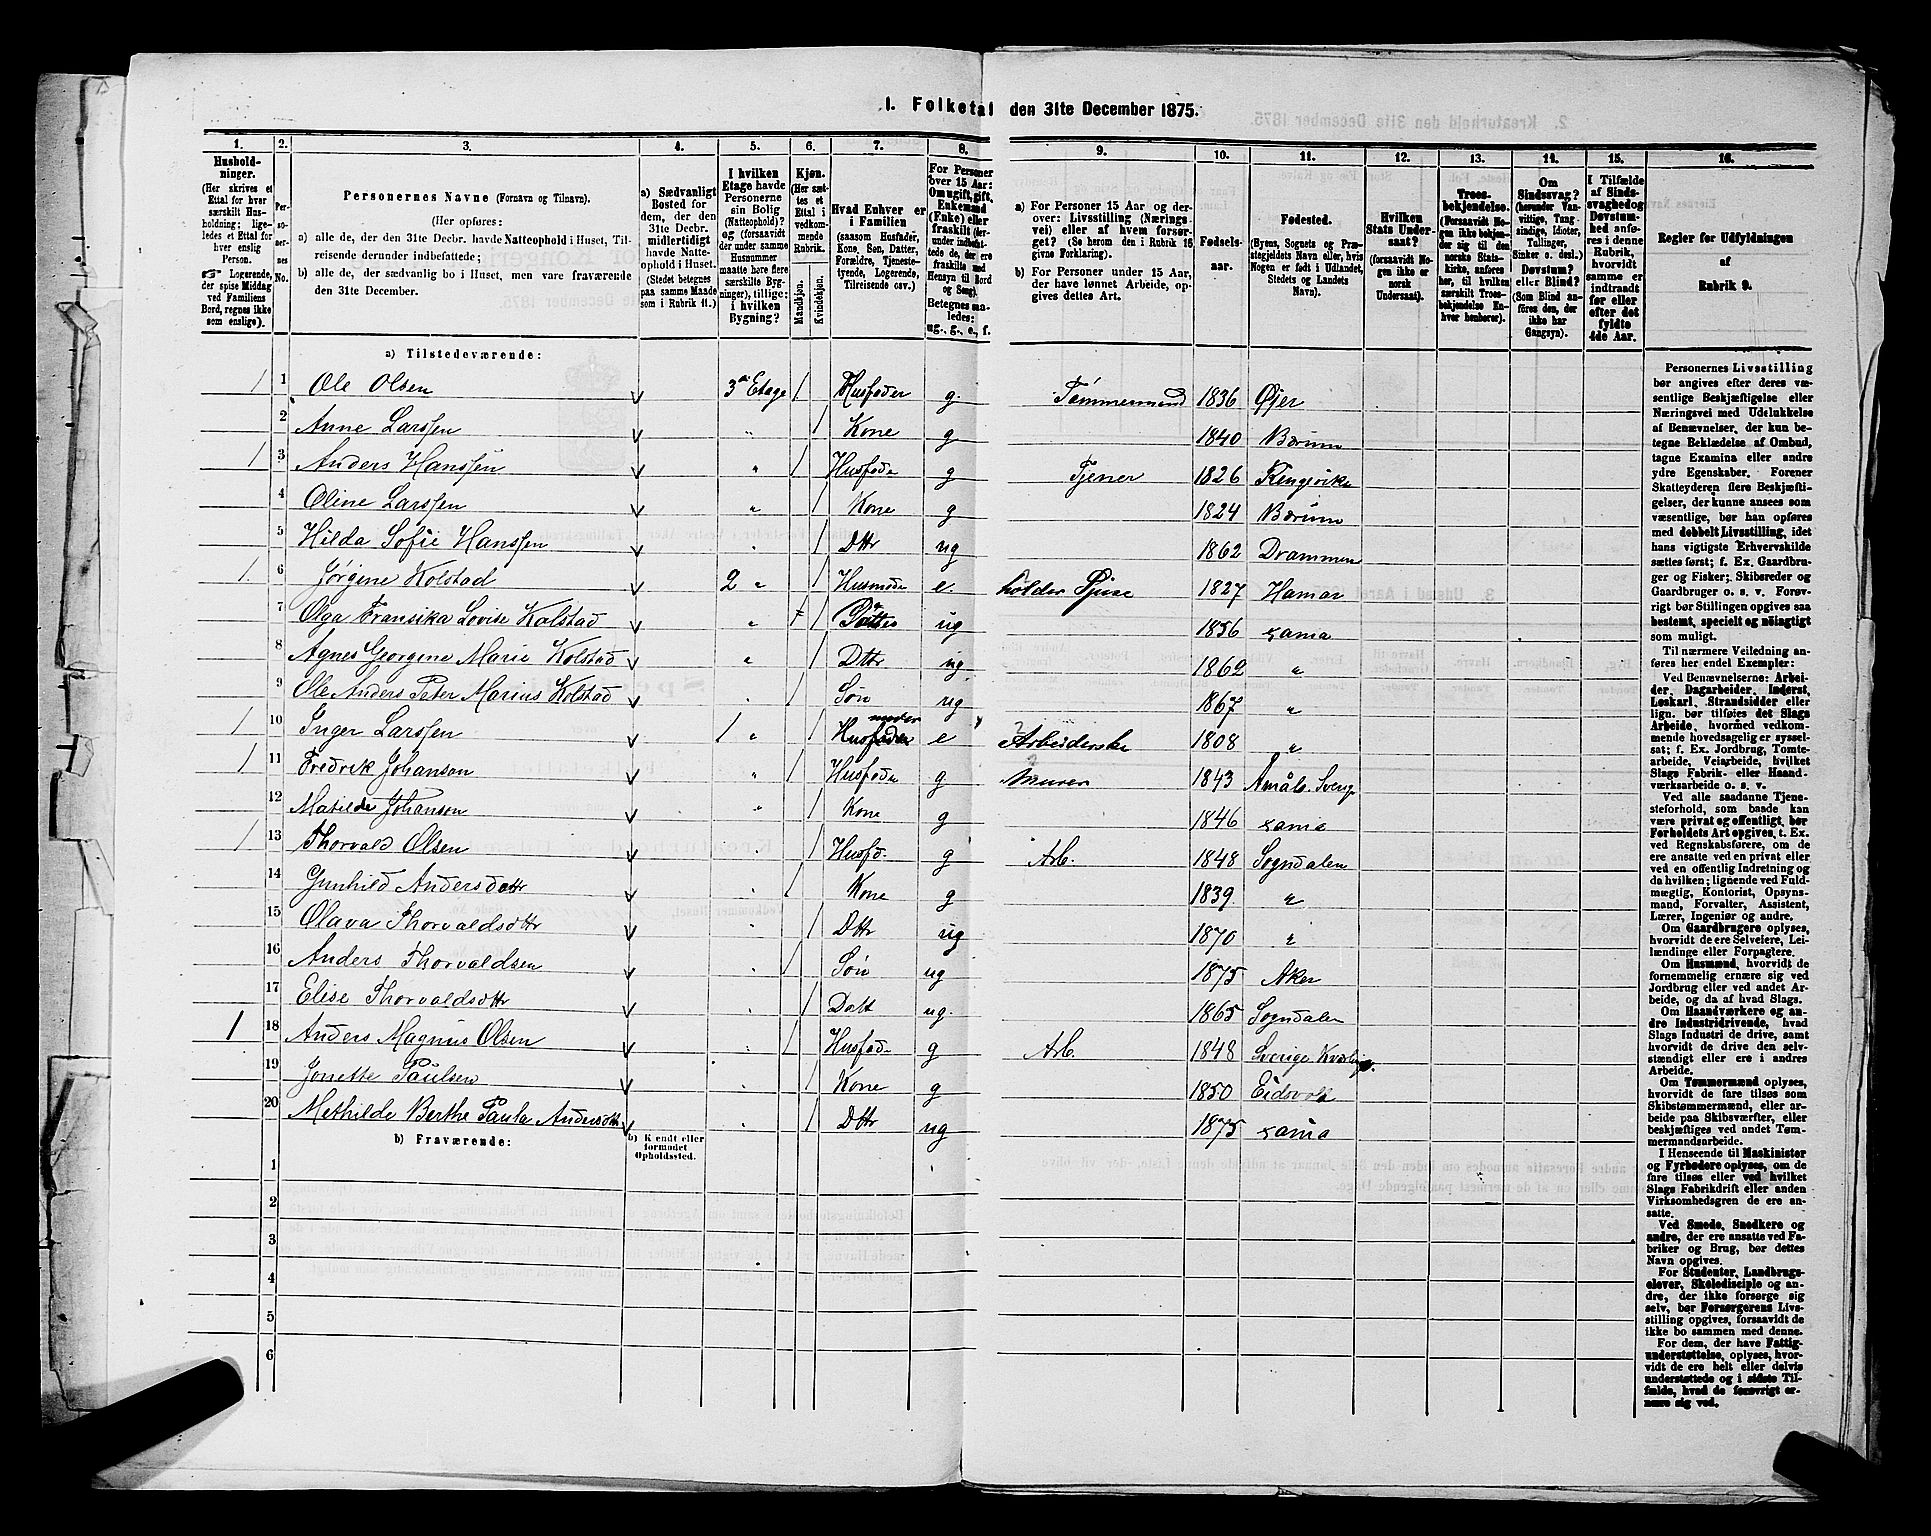 1. Folketal den 31te December 1875.
1. 2. 3. 4. 5. 6. 7. 8. 9. 10. 11. 12. 13. 14. 15. 16.
Husholdninger.
(Her skrives et
Ettal for hver
særskilt Husholdning;
ligeledes et Ettal for
hver enslig
Person.
☞ Logerende,
der spise Middag
ved Familiens
Bord, regnes ikke
som enslige).
Personernes No.
Personernes Navne (Fornavn og Tilnavn).
(Her opføres:
a) alle de, der den 31te Decbr. havde Natteophold i Huset, Tilreisende derunder indbefattede;
b) alle de, der sædvanlig bo i Huset, men vare fraværende
den 31te December.
a) Sædvanligt
Bosted for
dem, der den
31te Decbr.
midlertidigt
havde Natteophold i Huset.
(Stedet betegnes
paa samme Maade
som i Rubrik 11.)
I hvilken
Etage havde
Personerne
sin Bolig
(Natteophold)?
og (forsaavidt
der under samme
Husnummer
maatte høre flere
særskilte Bygninger), tillige:
i hvilken
Bygning?
Kjøn.
(Her sættes et
Ettal i
vedkommende
Rubrik.
Mandkjøn.
Kvindekjøn.
Hvad Enhver er
i Familien
(saasom Husfader,
Kone, Søn, Datter,
Forældre, Tjenestetyende, Logerende,
Tilreisende osv.).
For Personer
over 15 Aar:
Om ugift, gift,
Enkemand
(Enke) eller
fraskilt
Betegnes saaledes:
ug., g., e., f.
a) For Personer 15 Aar og derover: Livsstilling (Næringsvei) eller af hvem forsørget? (Se herom den i Rubrik 16
givne Forklaring).
b) For Personer under 15 Aar,
der have lønnet Arbeide, opgives dettes Art.
Fødselsaar.
Fødested.
(Byens, Sognets og Præstegjeldets Navn eller, hvis
Nogen er født i Udlandet,
Stedets og Landets
Navn).
Hvilken
Stats Undersaat?
(forsaavidt Nogen ikke er
norsk
Undersaat).
Troesbekjendelse.
(Forsaavidt Nogen ikke bekjender sig til den
norske Statskirke, anføres
her, til hvilken
særskilt Troesbekjendelse Enhver henhører).
Om
Sindssvag?
(herunder Vanvittige, Tungsindige, Idioter,
Tullinger,
Sinker o. desl.)
Døvstum?
eller Blind?
(Som Blind anføres den, der
ikke har
Gangsyn).
I Tilfælde
af Sindssvaghed og
Døvstumhed anføres i denne
Rubrik,
hvorvidt
samme er
indtraadt
før eller
efter det
fyldte
4de Aar.
Regler for Udfyldningen
af
Rubrik 9.
a) Tilstedeværende:
1 1 Ole Olsen v 3die Etage 1 Husfader g. Tømmermand 1836 Øjer
2 Anne Larssen v " 1 Kone g 1840 Bærum
1 3 Anders Hanssen v " 1 Husfade g Tjener 1826 Ringerike
4 Oline Larssen v " 1 Kone g 1824 Bærum
5 Hilda Sofie Hanssen v " 1 Dttr ug 1862 Drammen
1. 6 Jørgine Kolstad v 2 " 1 Husmode e. holder Spise 1827 Hamar
7 Olga Fransika Lovise Kolstad v " 1 Datter ug 1856 sama
8 Agnes Georgene Marie Kolstad v " 1 Dttr ug. 1862 "
9 Ole Anders Peter Marius Kolstad v " 1 Søn ug 1867 "
1 10 Inger Larssen v 1 " 1 Husmoder e Arbeiderske 1808 "
1 11 Fredrik Johanson v " 1 Husfade g Murer 1843 Åmål. Sverge
12 Matilde Johanson v " 1 Kone g 1846 sama
1 13 Thorvald Olsen v 1 Husfd. g Arb. 1848 Sogndalen
14 Gunhild Andersdottr v " 1 Kone g 1839. "
15 Olava Thorvaldsdttr v " 1 Dttr ug 1870 "
16 Anders Thorvaldsen v " 1 Søn ug 1875 Aker
17 Elise Thorvaldsdttr v " 1 Datt ug. 1865 Sogndalen
1 18 Anders Magnus Olsen v " 1 Husfad. g Arb. 1848 Sverige
19 Jonette Paulsen v " 1 Kone g 1850 Eidsvold
20 Mathilde Berthe Paula Andersdttr v " 1 Dttr ug 1875 sama
b) Fraværende:
b) Kjendt eller
formodet
Opholdssted.
1
2
3
4
5
6
Personernes Livsstilling
bør angives efter deres væsentlige Beskjæftigelse eller
Næringsvei med Udelukkelse
af Benævnelser, der kun betegne Beklædelse af Ombud,
tagne Examina eller andre
ydre Egenskaber. Forener
Skatteyderen flere Beskjæftigelser, der kunne ansees som
væsentlige, bør han opføres
med dobbelt Livsstilling, idet
hans vigtigste Erhvervskilde
sættes først; f. Ex. Gaardbruger og Fisker; Skibsreder og
Gaardbruger o. s. v. Forøvrigt bør Stillingen opgives saa
bestemt, specielt og nöiagtigt
som muligt.
Til nærmere Veiledning anføres her endel Exempler:
Ved Benævnelserne: Arbeider, Dagarbeider, Inderst,
Løskarl, Strandsidder eller
lign. bør tilføies det Slags
Arbeide, hvormed vedkommende hovedsagelig er sysselsat; f. Ex. Jordbrug, Tomtearbeide, Veiarbeide, hvilket
Slags Fabrik- eller Haandværksarbeide o. s. v.
Ved alle saadanne Tjenesteforhold, som baade kan
være privat og offentligt, bør
Forholdets Art opgives, t. Ex.
ved Regnskabsførere, om de
ere ansatte ved en privat eller
ved en offentlig Indretning og
da hvilken; lignende ved Fuldmægtig, Kontorist, Opsynsmand, Forvalter, Assistent,
Lærer, Ingeniør og andre.
Om Gaardbrugere oplyses,
hvorvidt de ere Selveiere, Leilændinge eller Forpagtere.
Om Husmænd, hvorvidt de
fornemmelig ernære sig ved
Jordbrug eller ved andet Arbeide, og da af hvad Slags.
Om Haandværkere og andre Industridrivende, hvad
Slags Industri de drive, samt
hvorvidt de drive den selvstændigt eller ere i andres
Arbeide.
Om Tømmermænd oplyses,
hvorvidt de fare tilsøs som
Skibstømmermænd, eller arbeide paa Skibsværfter, eller
beskjæftiges ved andet Tømmermandsarbeide.
I Henseende til Maskinister
og Fyrbødere oplyses, om de
fare tilsøs eller ved hvilket
Slags Fabrikdrift eller anden
Virksomhedsgren de ere ansatte.
Ved Smede, Snedkere og
andre, der ere ansatte ved Fabriker og Brug, bør dettes
Navn opgives.
For Studenter, Landbrugselever, Skoledisciple og andre, der ikke forsørge sig
selv, bør Forsørgerens Livsstilling opgives, forsaavidt de
ikke bo sammen med denne.
For dem, der have Fattigunderstøttelse, oplyses, hvorvidt de ere helt eller delvis
understøttede og i sidste Tilfælde, hvad de forøvrigt ernære sig ved.